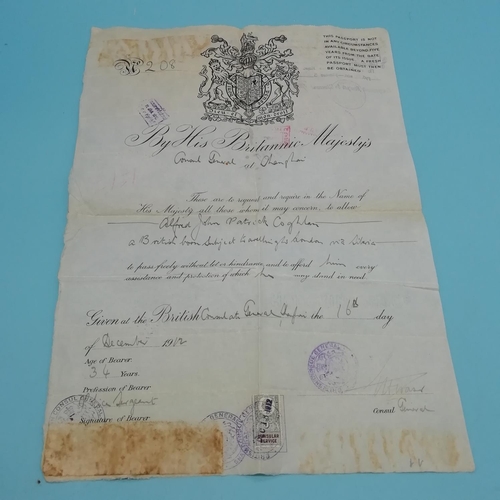 THIS PASSPORT IS NOT
IN ANY CIRCUMSTANCES
AVAILABLE BEYOND FIVE
YEARS FROM THE DATE
OF ITS ISSUE. A FRESH
PASSPORT MUST THEN
BE OBTAINED.
No 208
By His Britannic Majesty's
Consul General at Shanghai
These are to request and require in the Name of
His Majesty all those whom it may concern, to allow
Alfred John Patrick Coghlan
a British born Subject travelling to London via Siberia
to pass freely without let or hindrance, and to afford him every
assistance and protection of which he may stand in need
Given at the British Consulate General the 16th day
of December 1912
Age of Bearer
34 Years.
Profession of Bearer
Signature of Bearer
CONSULAR
SERVICE
Consul General